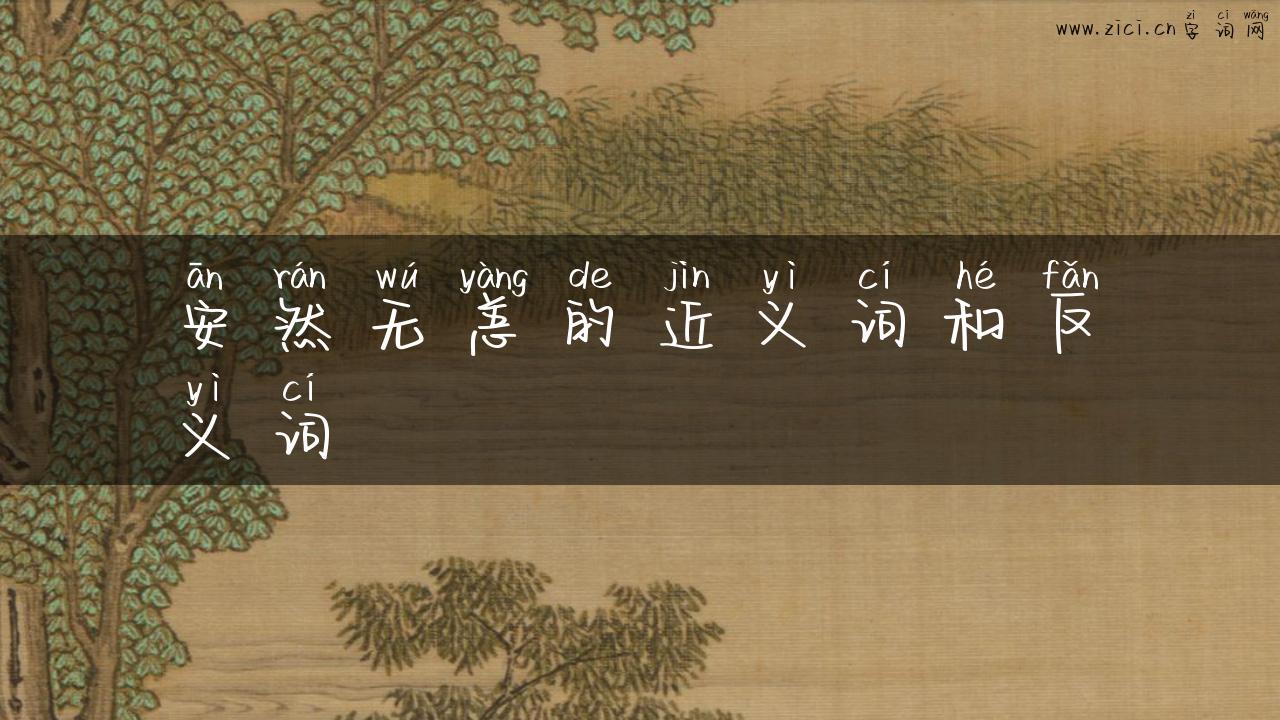 www.zici.cn zì cí wǎng 字词网
ān rán wú yàng de jìn yì cí hé fǎn
安然无恙的近义词和反
yì cí
义词